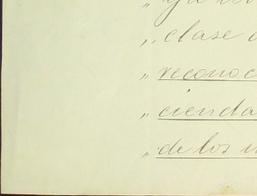 " clase
" reconoc
" cienda
" de los